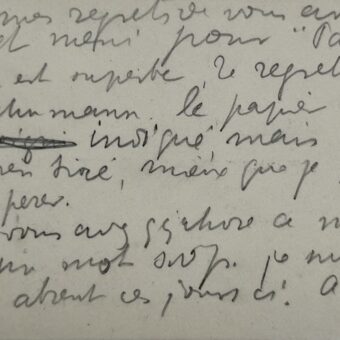 mes regrets de vous av
et merci pour "Pa
est superbe, le regret
mann. le papier
indigné mais
bien tiré, mieux que je
pérer.
vous avez à m
un mot svp. je
absent ces jours ci. A